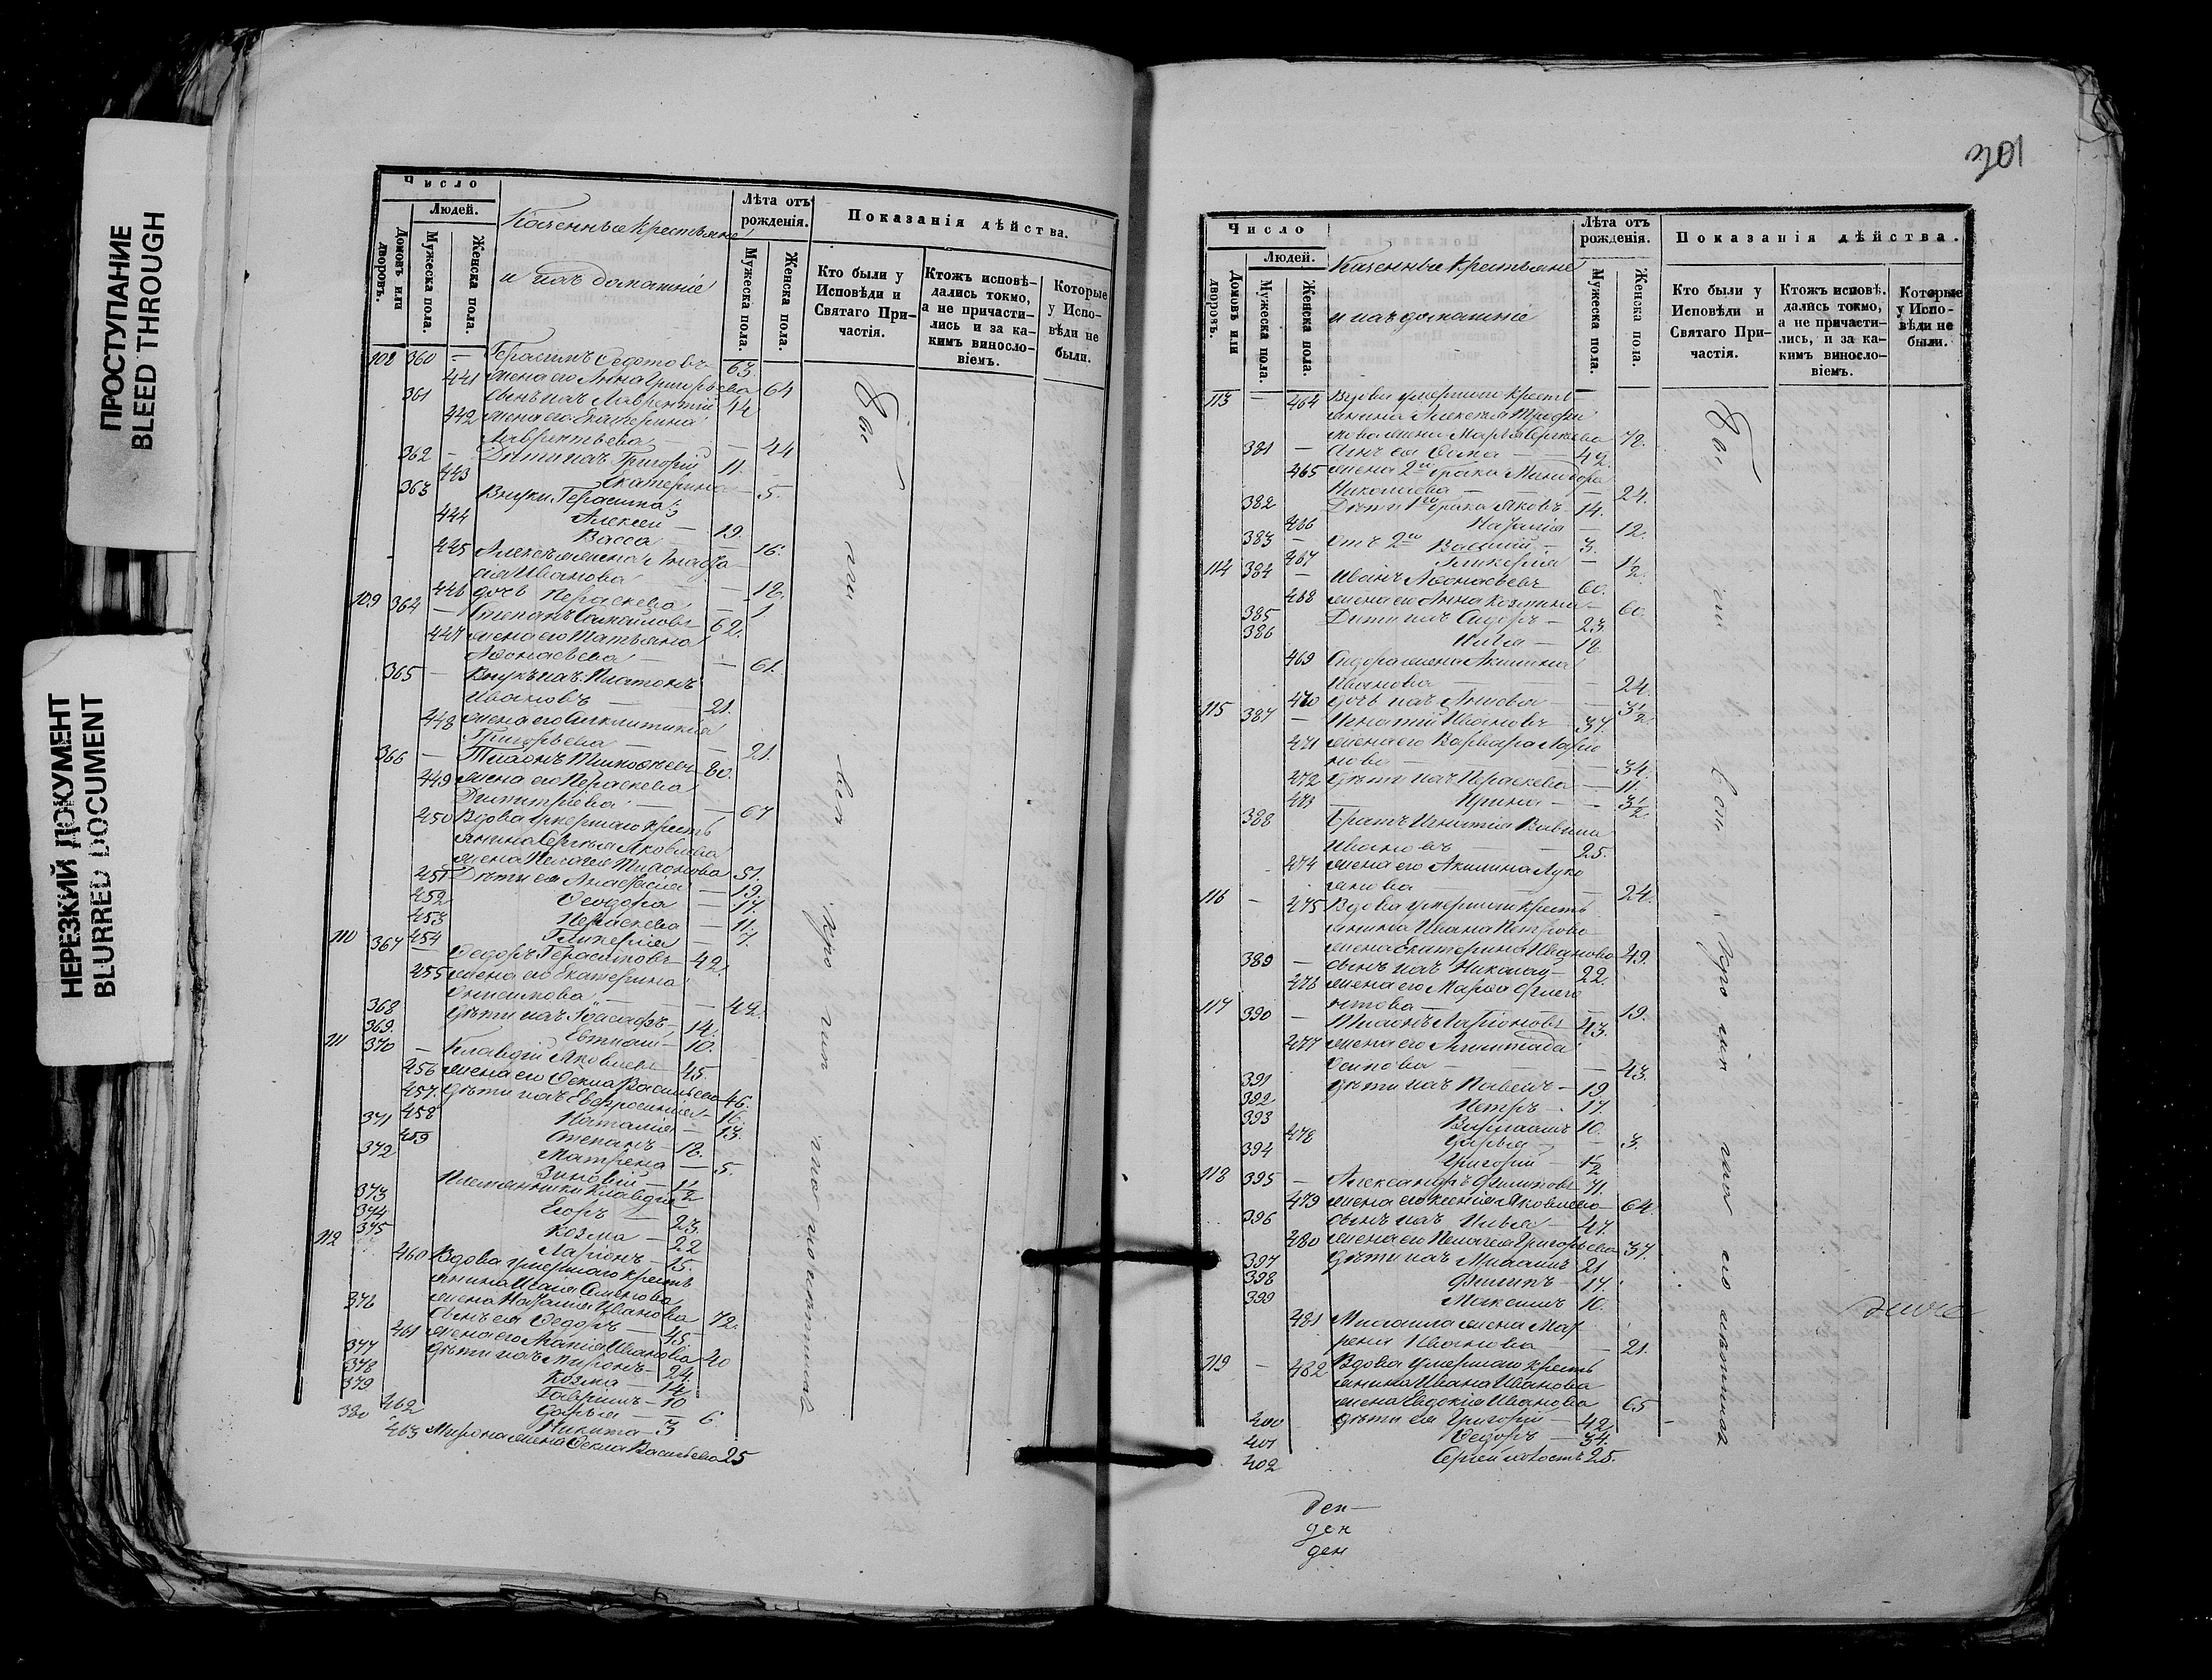 ПРОСТУПАНИЕ
BLEED THROUGH
НЕРЕЗКИЙ ДОКУМЕНТ
BLURRED DOCUMENT
Число
Людей.
Домовъ или дворовъ.
Мужеска пола.
Женска пола.
Казенные крестьяне
и ихъ домашніе
Лѣта отъ рожденія.
Мужеска пола.
Женска пола.
Показанія дѣйства.
Кто были у Исповѣди и Святаго При-
частія.
Ктожъ исповѣ-
дались токмо,
а не причасти-
лись и за ка-
кимъ виносло-
віемъ.
Которые
у Испо-
вѣди не
были.
108 360 — Герасимъ Ѳедотовъ 63.
441 жена его Анна Григорьева 64
361 сынъ ихъ Лаврентій 44
442 жена его Екатерина
Лаврентьева — — 44
362 — Дѣти ихъ Григорій 11.
443 Екатерина — 5.
363 Внуки Герасима:
Алексѣй — 19.
444 Васса — — 16.
445 Алексѣя жена Анаста-
сія Иванова — — 18.
446 дочь Параскева — 1.
109 364 — Степанъ Самойловъ 62.
447 жена его Татьяна
Аѳонасьева — — 61.
365 — Внукъ ихъ Платонъ
Ивановъ — 21.
448 жена его Синклитикія
Григорьева — — 21.
366 — Тихонъ Тимоѳеевъ 80.
449 жена его Параскева
Димитріева — — 67
450 Вдова умершаго кресть
янина Сергѣя Яковлева
жена Пелагея Тихонова 51.
451 Дѣти ея Анастасія — 19.
452 Ѳеодора — 17.
453 Параскева — 11.
454 Гликерія — 7.
110 367 — Ѳедоръ Герасимовъ 42.
455 жена его Екатерина
Онисимова — — 42.
368 дѣти ихъ Іоасафъ 14.
369. Евтихій — 10.
111 370 — Клавдій Яковлевъ 45.
456 жена его Ѳекла Васильева 46.
457. дѣти ихъ Евфросинія 16.
458 Наталія — 13.
371 Степанъ — 18.
459 Матрена — 5.
372 Зиновій — 1½
Племянники Клавдія
373 Егоръ — 23.
374 Козма — 22
375 Ларіонъ — 15.
112 460 Вдова умершаго кресть
янина Исаія Семенова
жена Наталія Иванова 72.
376 сынъ ея Ѳедоръ — 45
461 жена его Иванова 40
377 дѣти ихъ Миронъ — 24.
378 Козма — 14.
379 Гавріилъ — 10
462 Дарья — 6.
380 Никита — 3
463 Мирона жена Ѳекла Васильева 25
301
Число
Людей.
Домовъ или дворовъ.
Мужеска пола.
Женска пола.
Казенные крестьяне
и ихъ домашніе
Лѣта отъ рожденія.
Мужеска пола.
Женска пола.
Показанія дѣйства.
Кто были у
Исповѣди и
Святаго При-
частія.
Ктожъ исповѣ.
дались токмо,
а не причасти-
лись, и за ка-
кимъ виносло-
віемъ.
Которые
у Испо-
вѣди не
были.
113 — 464 Вдова умершаго кресть
янина Алексѣя Троѳи
мова жена Марѳа Сергѣева 78.
381 — сынъ ея — 42.
465 жена 2го брака Минодора
Николаева — — 24.
382 Дѣти 1го брака Яковъ 14.
466 Наталія — 12.
383 — отъ 2го Василій 3.
467 Гликерія — 1½
114 384 — Иванъ Аѳонасьевъ 60.
468 жена его Анна Козмина 60.
385 Дѣти ихъ Сидоръ — 23.
386 Илья — 18
469 Сидора жена Акилина
Иванова — — 24.
470 дочь ихъ Анисья — 3½
115 387 — Игнатій Ивановъ 37.
471 жена его Варвара Ларіо
нова — — 34.
472 дѣти ихъ Параскева — 11.
473 Ирина — 3½
388 Братъ Игнатія Вавила
Ивановъ — 25.
474 жена его Акилина Луко
янова — — 24.
116 — 475 Вдова умершаго кресть
янина Ивана Петрова
жена Екатерина Иванова 49.
389 — сынъ ихъ Николай — 22.
476 жена его Марѳа
— 19.
117 390 — Тихонъ Ларіоновъ 43.
477 жена его
Осипова — — 43.
391 дѣти ихъ Павелъ — 19.
392 Петръ — 17.
393 Варлаамъ 10.
478 Дарья — 3.
394 Григорій — 1½
118 395 — Александръ Филиповъ 71.
479 жена его Ксенія Яковлева 64.
396 сынъ ихъ Илья — 47.
480 жена его Пелагея Григорьева 37.
397 дѣти ихъ Михаилъ 21
398 Филипъ — 17.
399 Максимъ 10.
481 Михаила жена
Иванова — 21.
119 — 482 Вдова умершаго кресть
янина Ивана Иванова
жена Евдокія Иванова 65
400 дѣти ея Григорій — 42.
401 Ѳедоръ — 34.
402 Сергѣй 25.
ден
ден